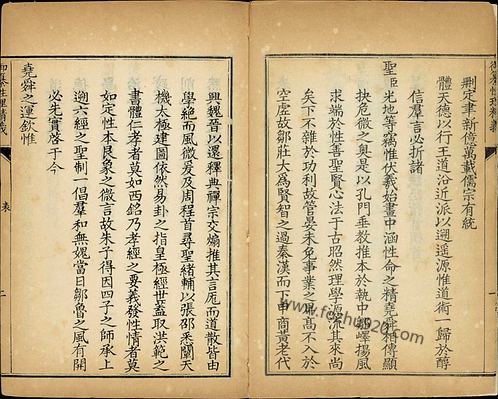 御纂性理精義
刪定聿新億萬載儒宗有統
體天德以行王道沿近派以遡遥源惟道術一歸於醇
信羣言必折諸
聖臣光地等竊惟伏羲始畫中涵性命之精堯舜相傳顯
抉危微之奥是以孔門垂教推本於執中鄒嶧揚風
求端於性善聖賢心法于古昭然理學源流其來尚
矣下不雜於功利故管晏未免事業之卑高不入於
空虚故鄒莊大為賢智之過秦漢而下申商黄老代
www.fozhu920.com
興魏晉以還釋典禪宗交煽推其言厖而道散皆由
學絶而風微爰及周程首尋聖緒輔以張邵悉闡天
機太極建圖依然易卦之指皇極經世葢取洪範之
書體仁孝者莫如西銘乃孝經之要義發性情者莫
如定性本艮象之微言故朱子得因四子之師承上
遡六經之聖制一倡羣和無媿當日鄒魯之風有開
必先實啓于今
堯舜之運欽惟
御纂性理精義
表
二